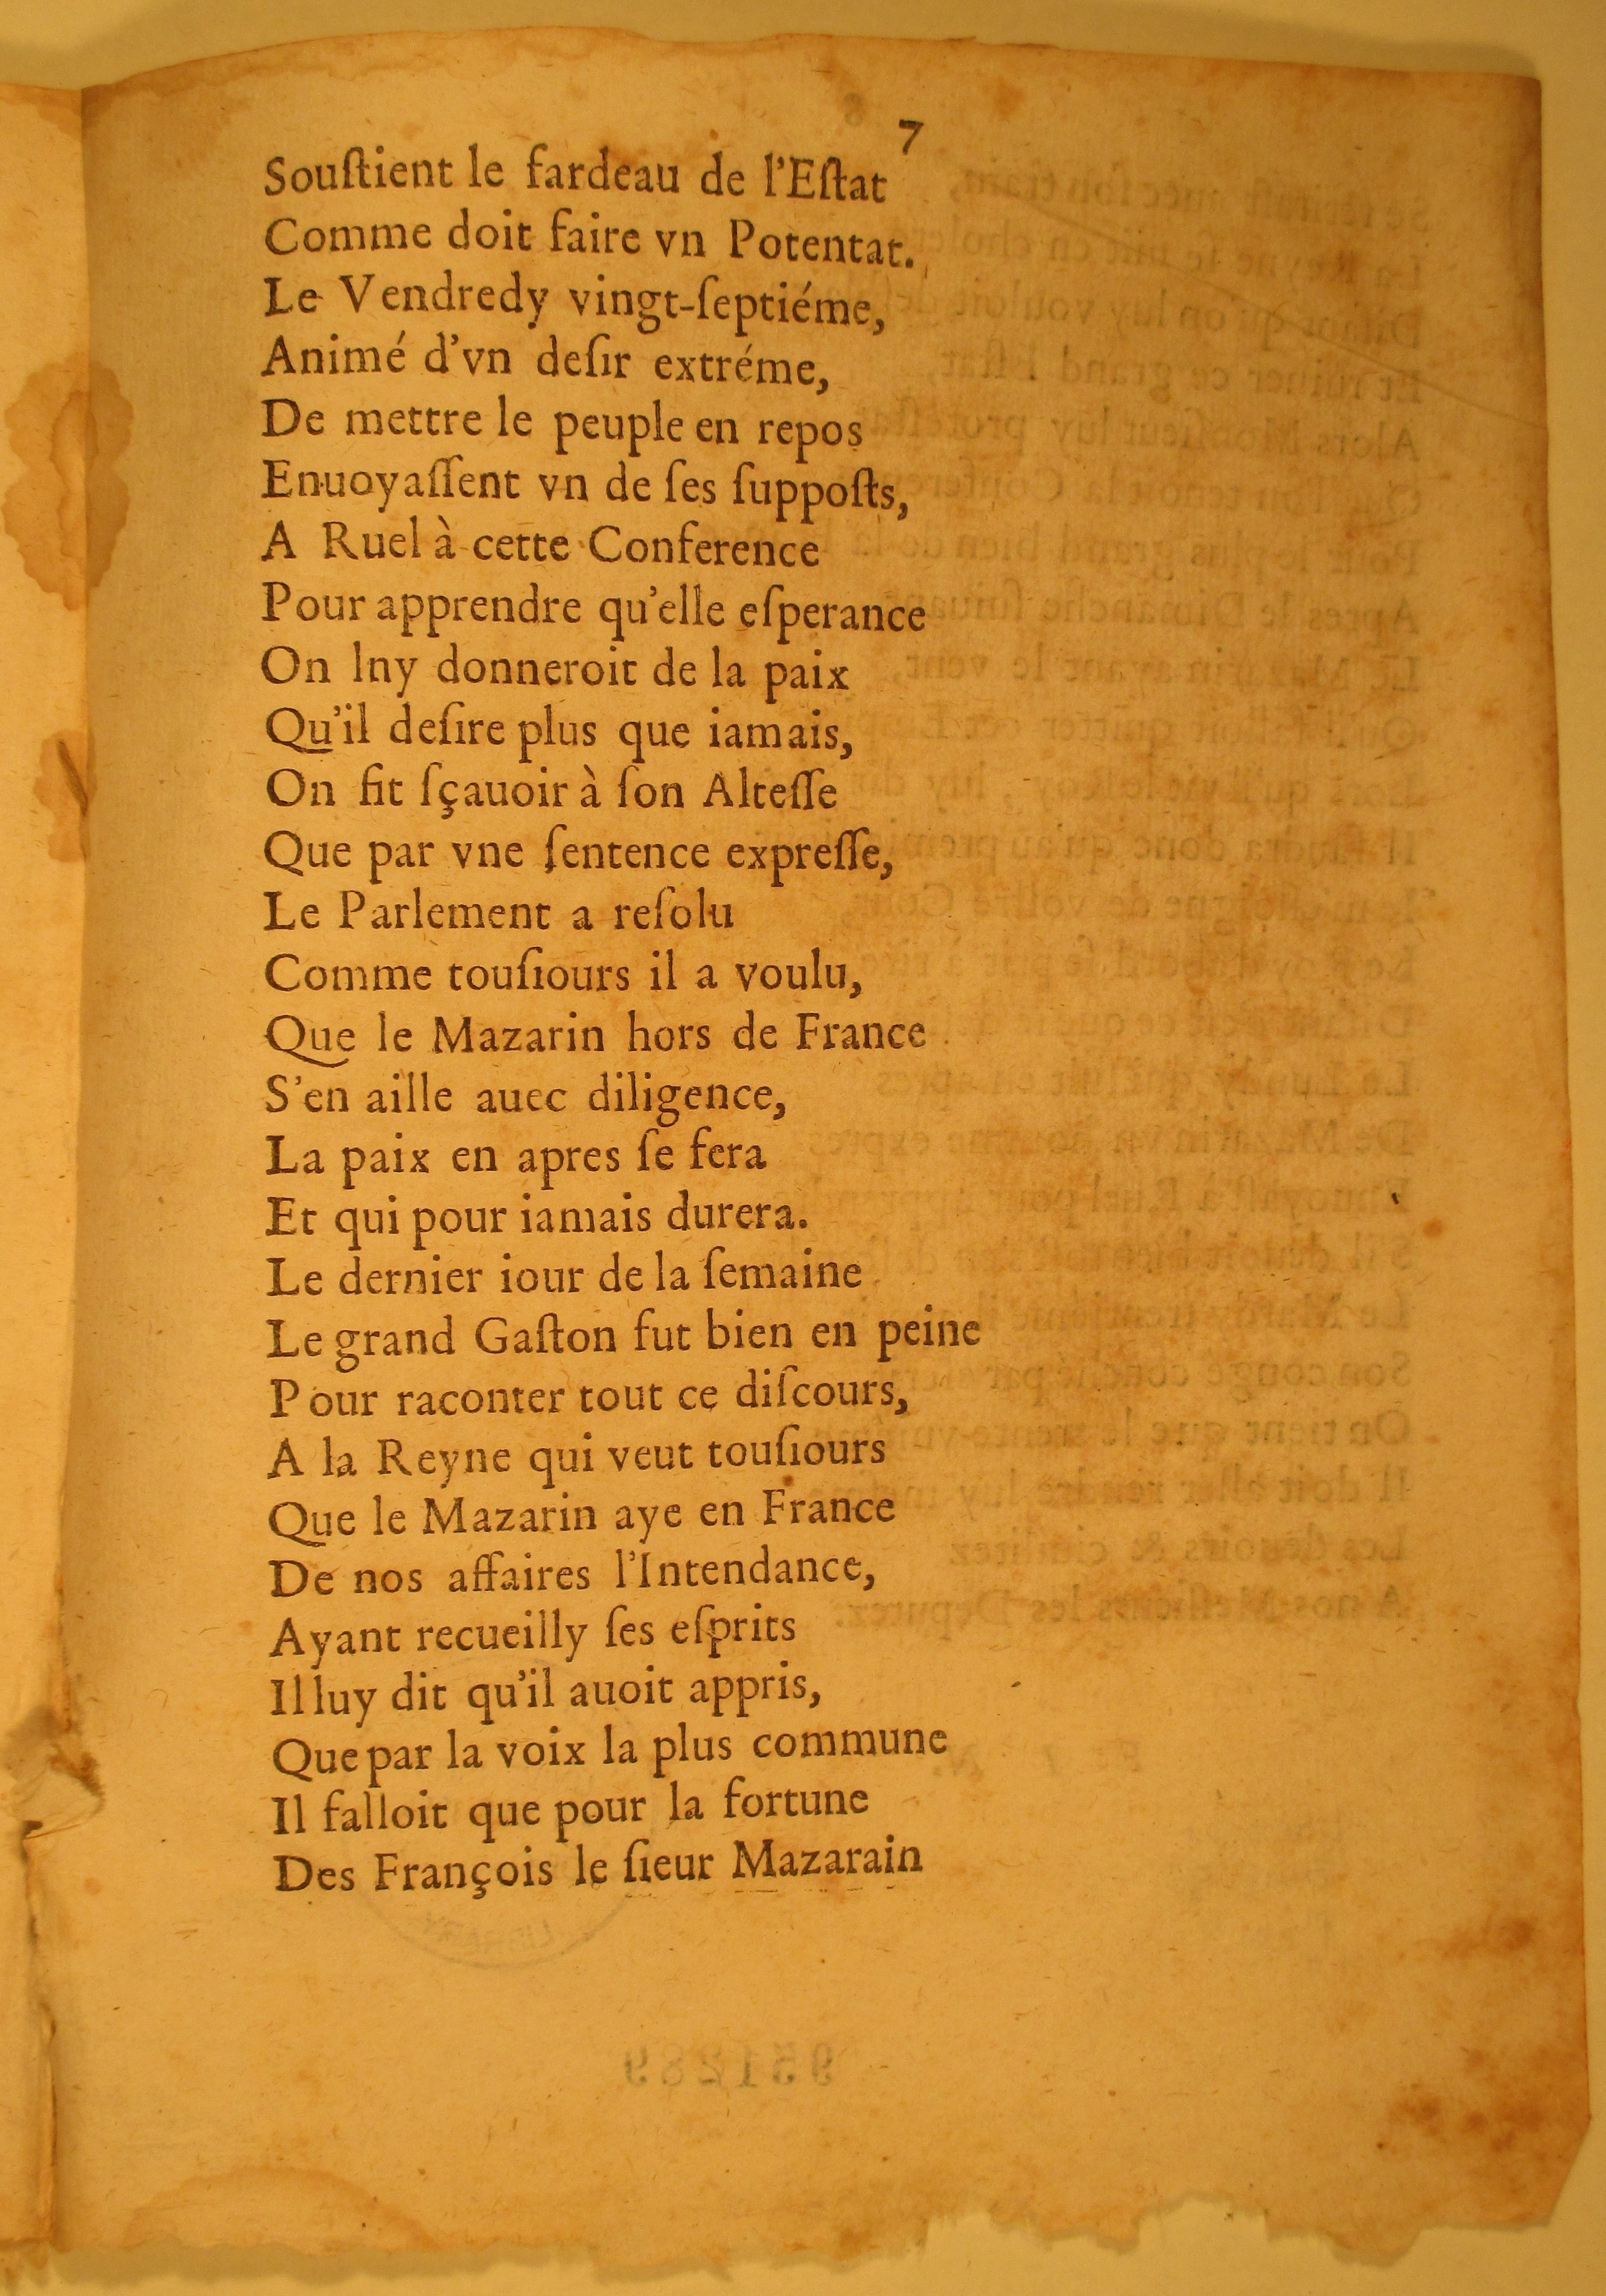 7
Souſtient le fardeau de l'Eſtat
Comme doit faire vn Potentat.
Le Vendredy vingt-ſeptiéme,
Animé d'vn deſir extréme,
De mettre le peuple en repos
Enuoyaſſent vn de ſes ſuppoſts,
A Ruel à cette Conference
Pour apprendre qu'elle eſperance
On lny donneroit de la paix
Qu'il deſire plus que iamais,
On fit ſçauoir à ſon Alteſſe
Que par vne ſentence expreſſe,
Le Parlement a reſolu
Comme touſiours il a voulu,
Que le Mazarin hors de France
S'en aille auec diligence,
La paix en apres ſe fera
Et qui pour iamais durera.
Le dernier iour de la ſemaine
Le grand Gaſton fut bien en peine
Pour raconter tout ce diſcours,
A la Reyne qui veut touſiours
Que le Mazarin aye en France
De nos affaires l'Intendance,
Ayant recueilly ſes eſprits
Il luy dit qu'il auoit appris,
Que par la voix la plus commune
Il falloit que pour la fortune
Des François le ſieur Mazarain